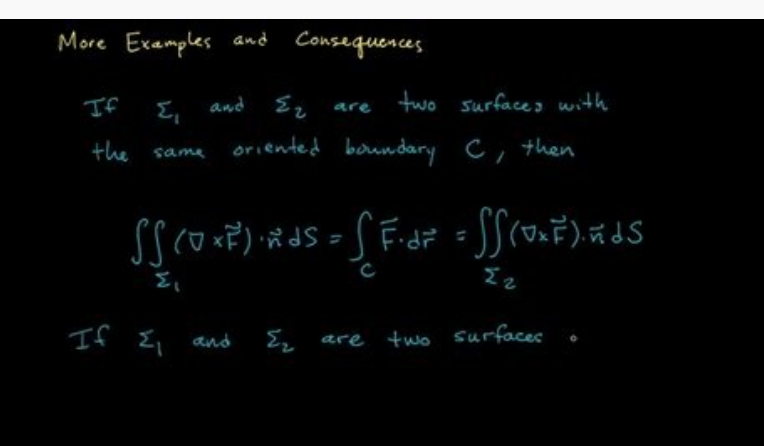 More Examples and Consequences
If Σ₁ and Σ₂ are two surfaces with
the same oriented boundary C, then
∬_Σ₁ (∇×F⃗)·n⃗ dS = ∫_C F⃗·dr⃗ = ∬_Σ₂ (∇×F⃗)·n⃗ dS
If Σ₁ and Σ₂ are two surfaces